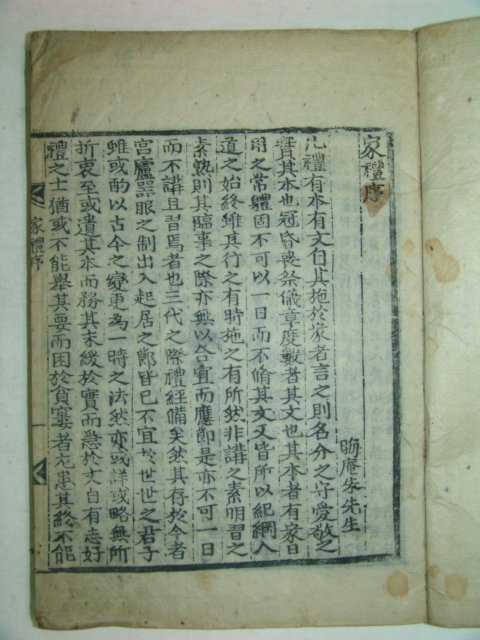 家禮序
晦庵朱先生
凡禮有本有文自其施於家者言之則名分之守愛敬之
實其本也冠昏喪祭儀章度數者其文也其本者有家日
用之常體固不可以一日而不脩其文又皆所以紀綱人
道之始終雖其行之有時施之有所然非講之素明習之
素熟則其臨事之際亦無以合宜而應節是亦不可一日
而不講且習焉者也三代之際禮經備矣然其存於今者
宮廬器服之制出入起居之節皆已不宜於世世之君子
雖或酌以古今之變更為一時之法然亦或詳或略無所
折衷至或遺其本而務其末緩於實而急於文自有志好
禮之士猶或不能擧其要而困於貧窶者尤患其終不能
家禮序